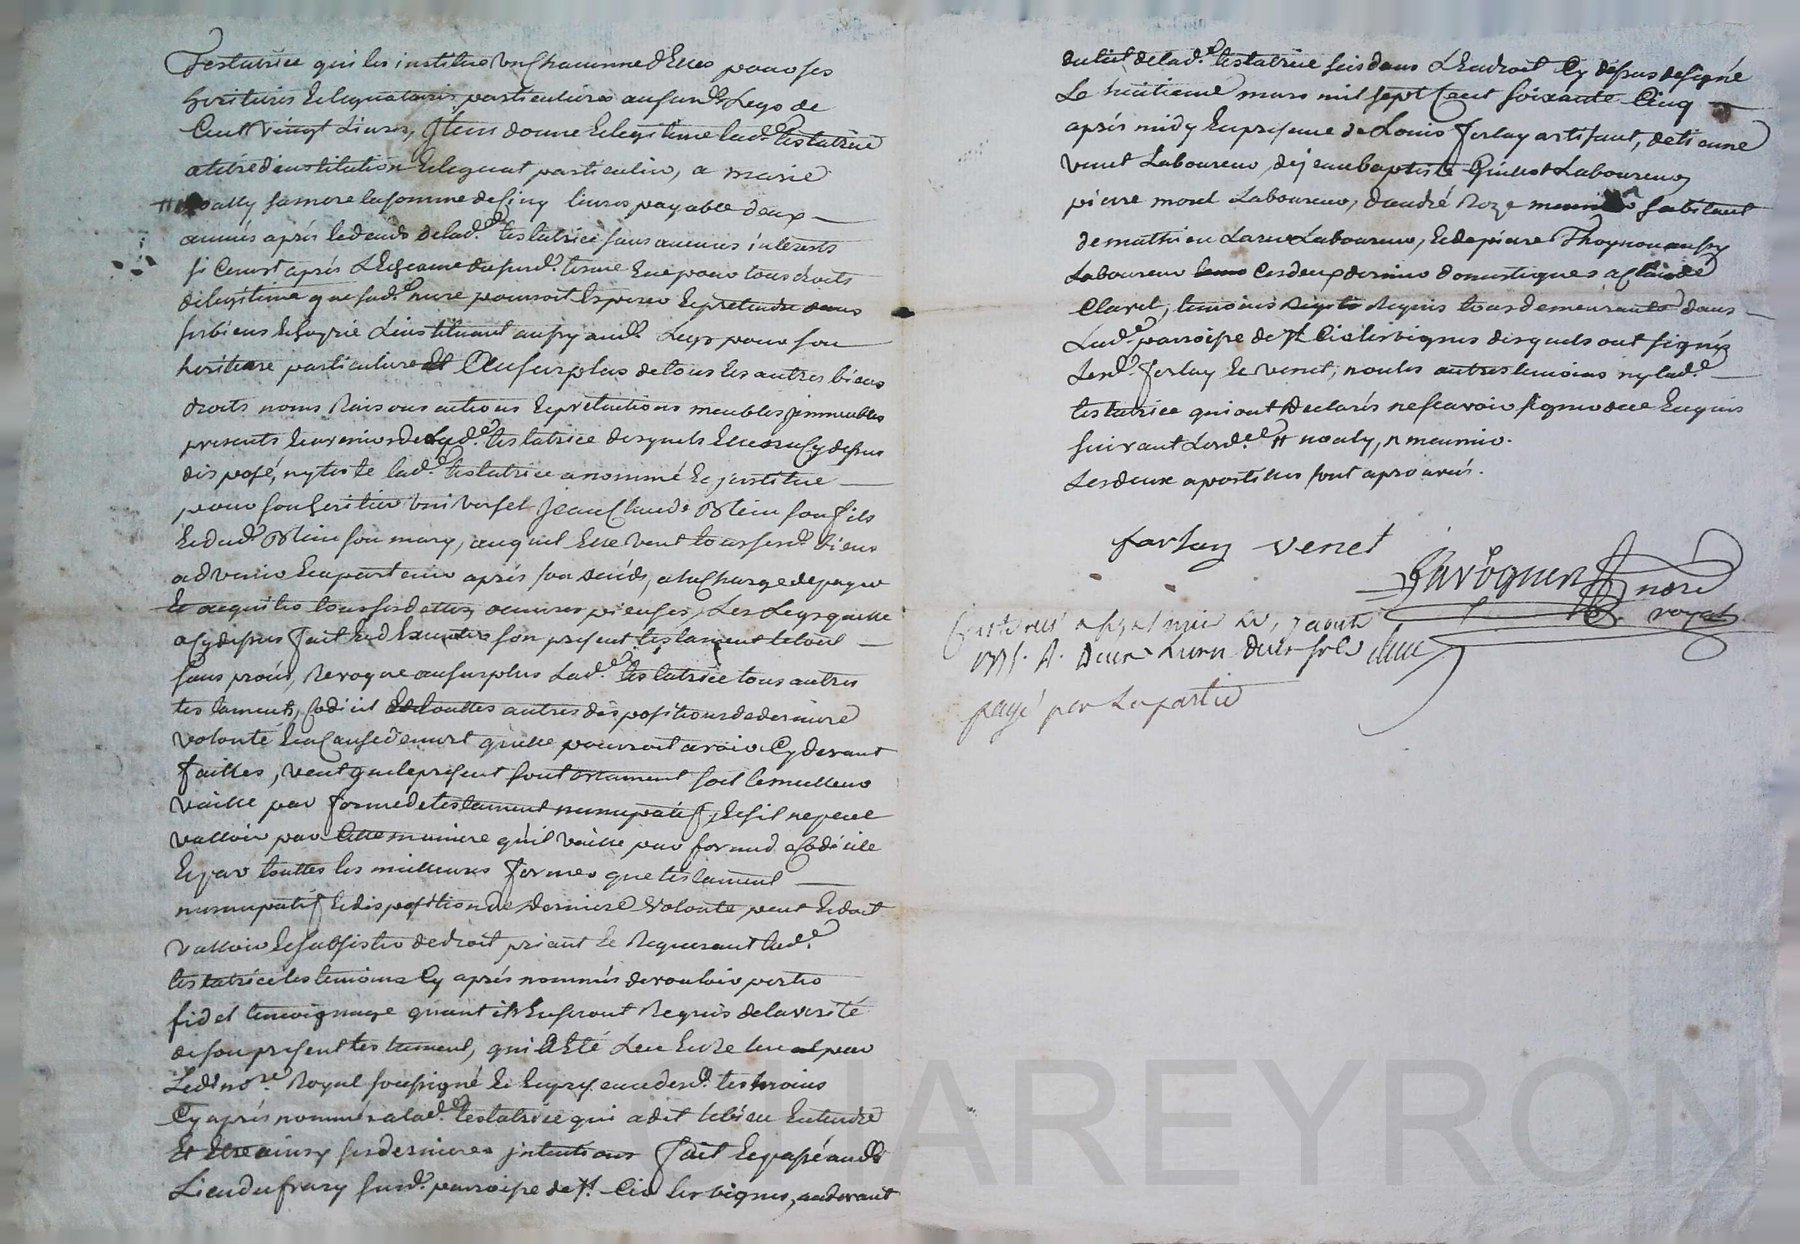 Testatrice qui les institue un chacunne d'Elles pour ses
heritieres et legnataires particulieres au susd. Legs de
Cent vingt Livres, jtem donne et legs time lad.e testatrice
a titre d'institution et legnat particulier, a marie
# noally sa mere la somme de cinq livres payable deux
années aprés le deceds de lad.e testatrice sans aucuns interests
si ce n'est aprés L'Echeance du susd. terme et ce pour tous droits
de legitime que sad.e mere pourroit Esperer et pretendre dans
ses biens et hoyrie L'instituant aussy aud. Legs pour son
heritiere particuliere Et Au surplus de tous les autres biens
droits noms Raisons actions et pretentions meubles jmmeubles
presents et avenir de lad.e testatrice desquels Elle n'a Cy dessus
disposé, ny testé lad.e testatrice a nommé et jnstitué
pour son heritier universel Jean Claude Blein son fils
et dud. Blein son mary, auquel Elle veut tous sesd. biens
advenir et apartenir aprés son deceds, a la Charge de payer
et acquitter tous ses dettes, œuvres pieuses, Les Legs qu'elle
a Cy dessus fait et d'Executer son present testament le tout
sans procés, Revoque au surplus Lad.e testatrice tous autres
testaments, Codicil et touttes autres dispositions de derniere
volonté et a Cause de mort qu'elle pourroit avoir Cy devant
faittes, veut que le present sont testament soit le meilleur
vaille par forme de testament nuncupatif, et s'il ne peut
valloir par telle maniere qu'il vaille par forme de Codicile
et par touttes les meilleures formes que testament
nuncupatif et disposition de derniere Volonté peut et doit
valloir et subsister de droit priant et Requerant lad.e
testatrice les temoins Cy aprés nommés de vouloir porter
fidel temoignage quant ils En seront Requis de la verité
de son present testament, qui A Eté Leu et Releu par
Led. no.re Royal soussigné et En presence desd. temoins
Cy aprés nommés a lad.e testatrice qui a dit le bien Entendre
Et Etre ainsy ses dernieres jntentions fait et passé aud.
Lieu du frasy susd. parroisse de St Cierles vignes, audevant
du lit de lad.e testatrice sis dans L'Endroit Cy dessus designé
Le huitieme mars mil sept Cent soixante Cinq
aprés midy En presence de Louis ferlay artisant, d'etienne
venet Laboureur, de jean baptiste Laboureur
pierre morel Laboureur, d'andré Roze meunier habitant
de mathieu Larue Laboureur, et de pierre Thoynon aussy
Laboureur Ces deux derniers domestiques a Claude
Claret, temoins Requis tous demeurants dans
Lad.e parroisse de St Cierles vignes desquels ont signés
Lesd. ferlay et venet, non les autres temoins ny lad.e
testatrice qui ont Declarés ne scavoir signer de ce Enquis
suivant L'ord.ce # noaly, n meunier.
Les deux apostilles sont aprouvés.
farlay venet
Ravognen nore
royal
7 aout
Deux Livres dix sols
payé par La partie
CHAREYRON